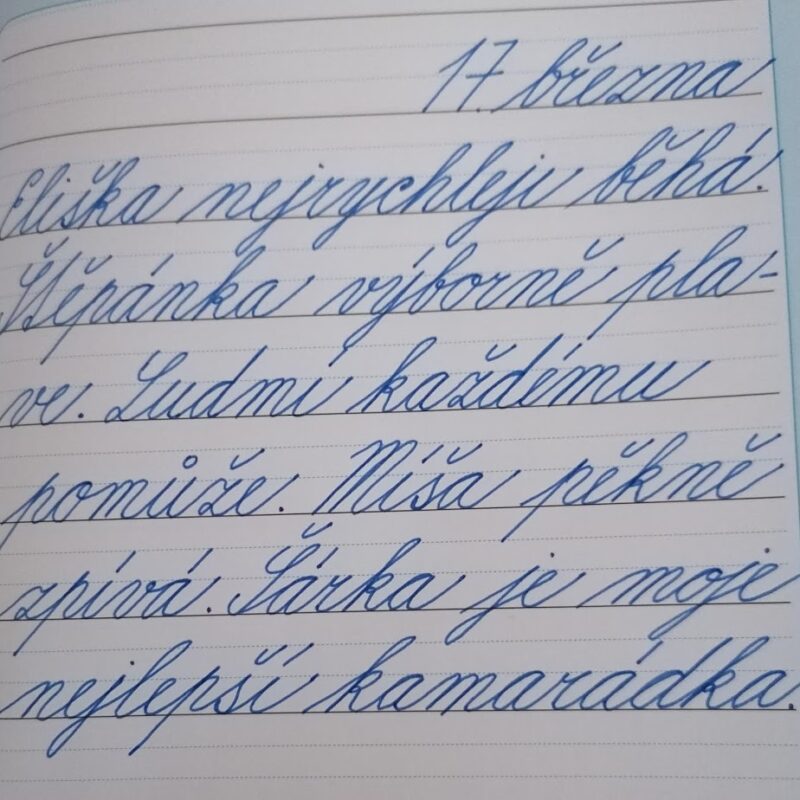 17. března
Eliška nejrychleji běhá.
Štěpánka výborně pla-
ve. Ludmi každému
pomůže. Míša pěkně
zpívá. Šárka je moje
nejlepší kamarádka.